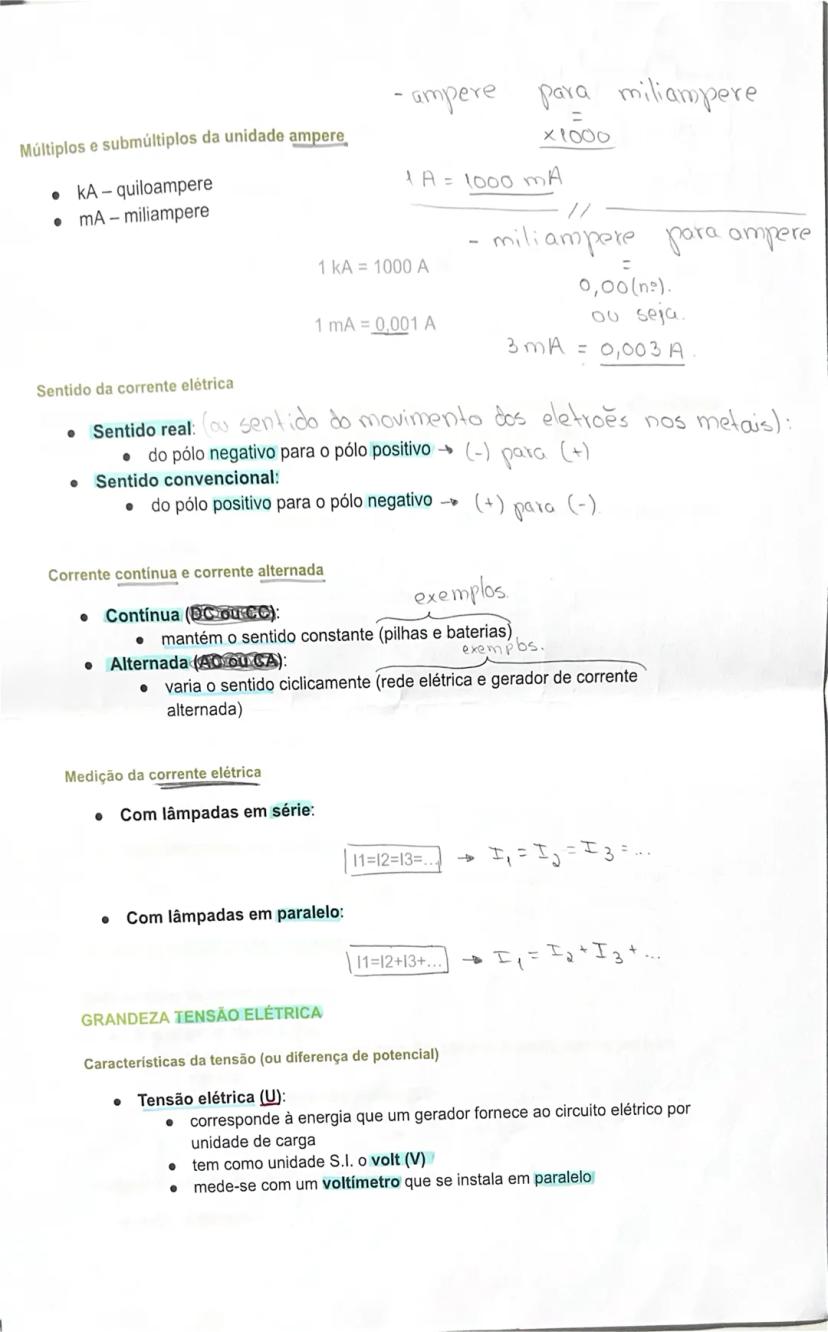 - ampere para miliampere
=
x1000
Múltiplos e submúltiplos da unidade ampere
• kA – quiloampere
• mA – miliampere
1 A = 1000 mA
//
- miliampere para ampere
=
0,00(nº).
ou seja.
3 mA = 0,003 A.
1 kA = 1000 A
1 mA = 0,001 A
Sentido da corrente elétrica
• Sentido real: (ou sentido do movimento dos eletroẽs nos metais):
• do pólo negativo para o pólo positivo → (-) para (+)
• Sentido convencional:
• do pólo positivo para o pólo negativo → (+) para (-).
Corrente contínua e corrente alternada
exemplos.
• Contínua (DC ou CC):
• mantém o sentido constante (pilhas e baterias)
exemplos.
• Alternada (AC ou CA):
• varia o sentido ciclicamente (rede elétrica e gerador de corrente
alternada)
Medição da corrente elétrica
• Com lâmpadas em série:
I1=I2=I3=... → I₁ = I₂ = I₃ = ...
• Com lâmpadas em paralelo:
I1=I2+I3+... → I₁ = I₂ + I₃ + ...
GRANDEZA TENSÃO ELÉTRICA
Características da tensão (ou diferença de potencial)
• Tensão elétrica (U):
• corresponde à energia que um gerador fornece ao circuito elétrico por
unidade de carga
• tem como unidade S.I. o volt (V)
• mede-se com um voltímetro que se instala em paralelo